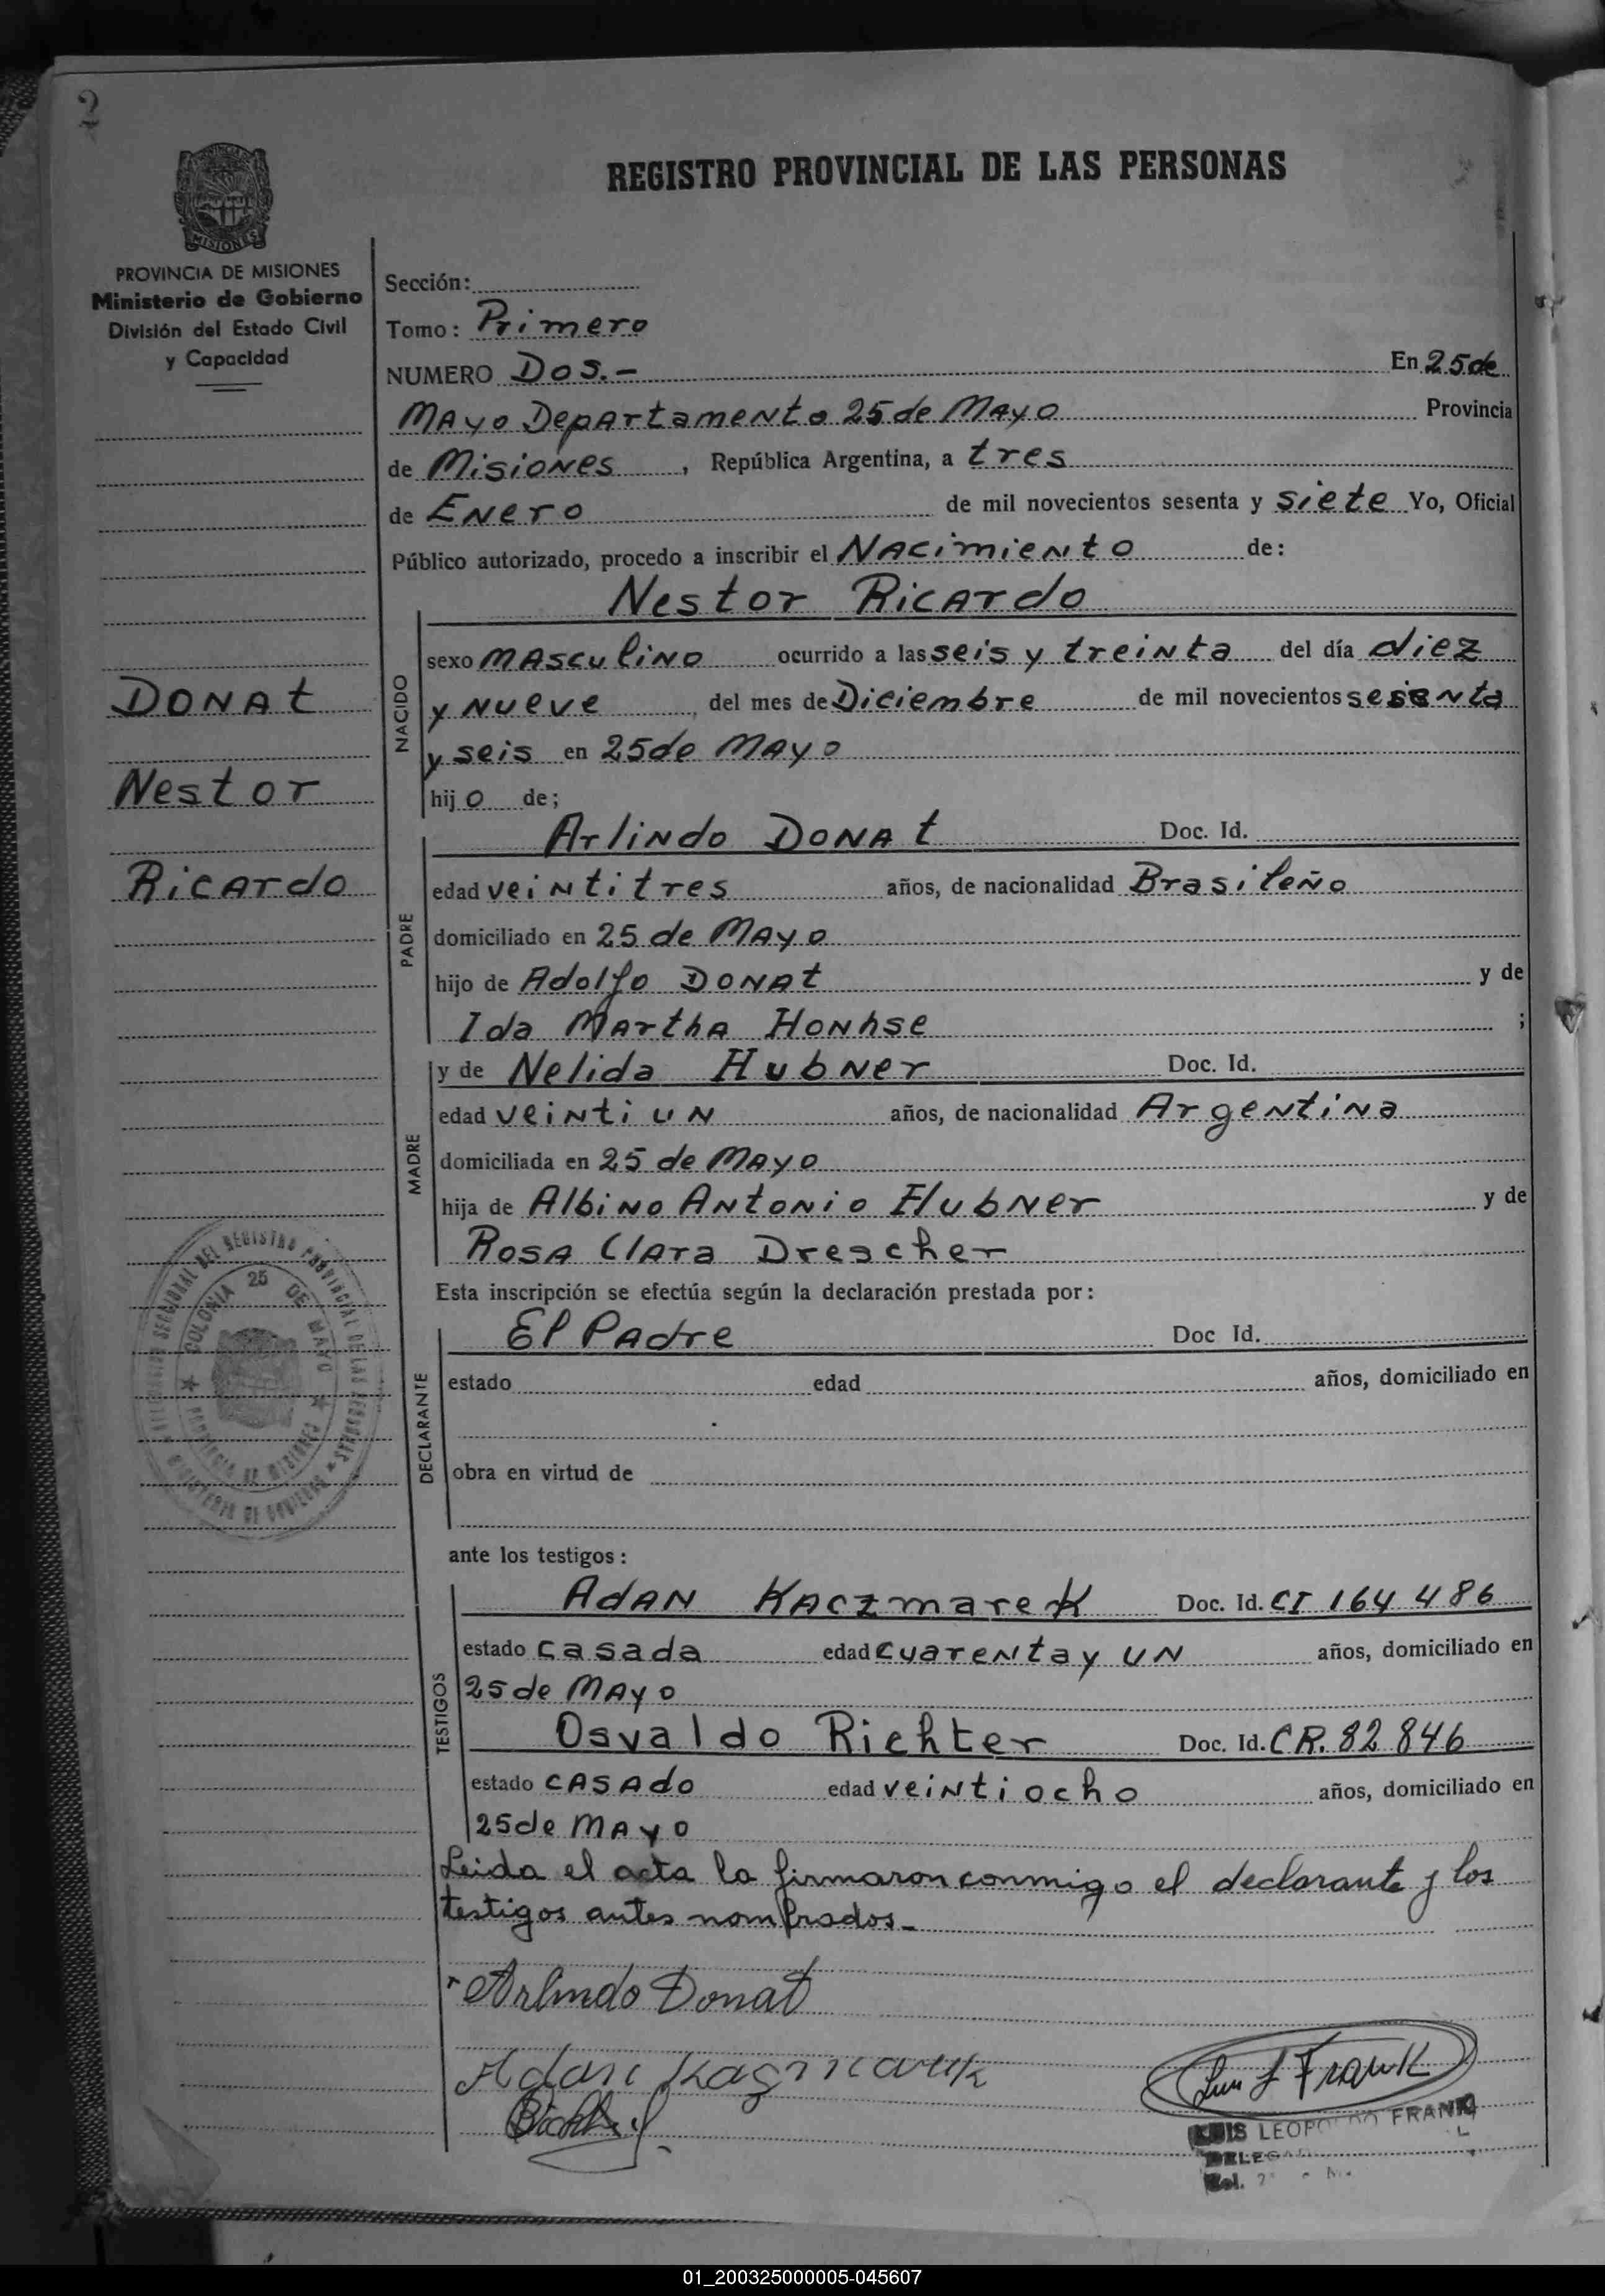 2
REGISTRO PROVINCIAL DE LAS PERSONAS
MISIONES
PROVINCIA DE MISIONES
Ministerio de Gobierno
División del Estado Civil
y Capacidad
DONAt
Nestor
Ricardo
Sección:
Tomo: Primero
NUMERO Dos.- En 25 de
Mayo Departamento 25 de Mayo Provincia
de Misiones, República Argentina, a tres
de Enero de mil novecientos sesenta y siete Yo, Oficial
Público autorizado, procedo a inscribir el Nacimiento de:
Nestor Ricardo
NACIDO
sexo masculino ocurrido a las seis y treinta del día diez
y nueve del mes de Diciembre de mil novecientos sesenta
y seis en 25 de Mayo
hijo de;
PADRE
Arlindo Donat Doc. Id.
edad veintitres años, de nacionalidad Brasileño
domiciliado en 25 de Mayo
hijo de Adolfo Donat y de
Ida Martha Honhse ;
MADRE
y de Nelida Hubner Doc. Id.
edad veinti un años, de nacionalidad Argentina
domiciliada en 25 de Mayo
hija de Albino Antonio Hubner y de
Rosa Clara Drescher
Esta inscripción se efectúa según la declaración prestada por:
DECLARANTE
El Padre Doc Id.
estado edad años, domiciliado en
obra en virtud de
ante los testigos:
TESTIGOS
Adan Kaczmarek Doc. Id. CI 164 486
estado casada edad cuarenta y un años, domiciliado en
25 de Mayo
Osvaldo Richter Doc. Id. CR. 82 846
estado casado edad veintiocho años, domiciliado en
25 de Mayo
Leida el acta la firmaron conmigo el declarante y los
testigos antes nombrados.-
Arlindo Donat
Adan Kaczmarek
Luis L Frank
LUIS LEOPOLDO FRANK
SECCIONAL DEL REGISTRO PROVINCIAL DE LAS PERSONAS
MINISTERIO DE GOBIERNO
COLONIA 25 DE MAYO
PROVINCIA DE MISIONES
01_200325000005-045607